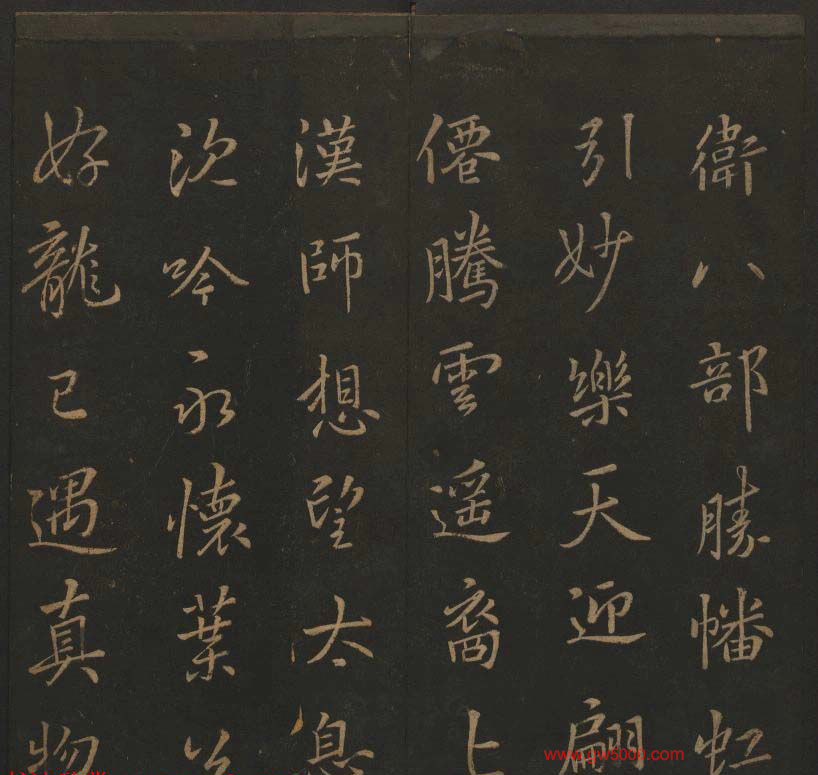 衛八部勝幡虹
引妙樂天迎翩
僊騰雲遥裔上
漢師想望太息
沈吟永懷葉公
好龍已遇真物
www.yw5000.com